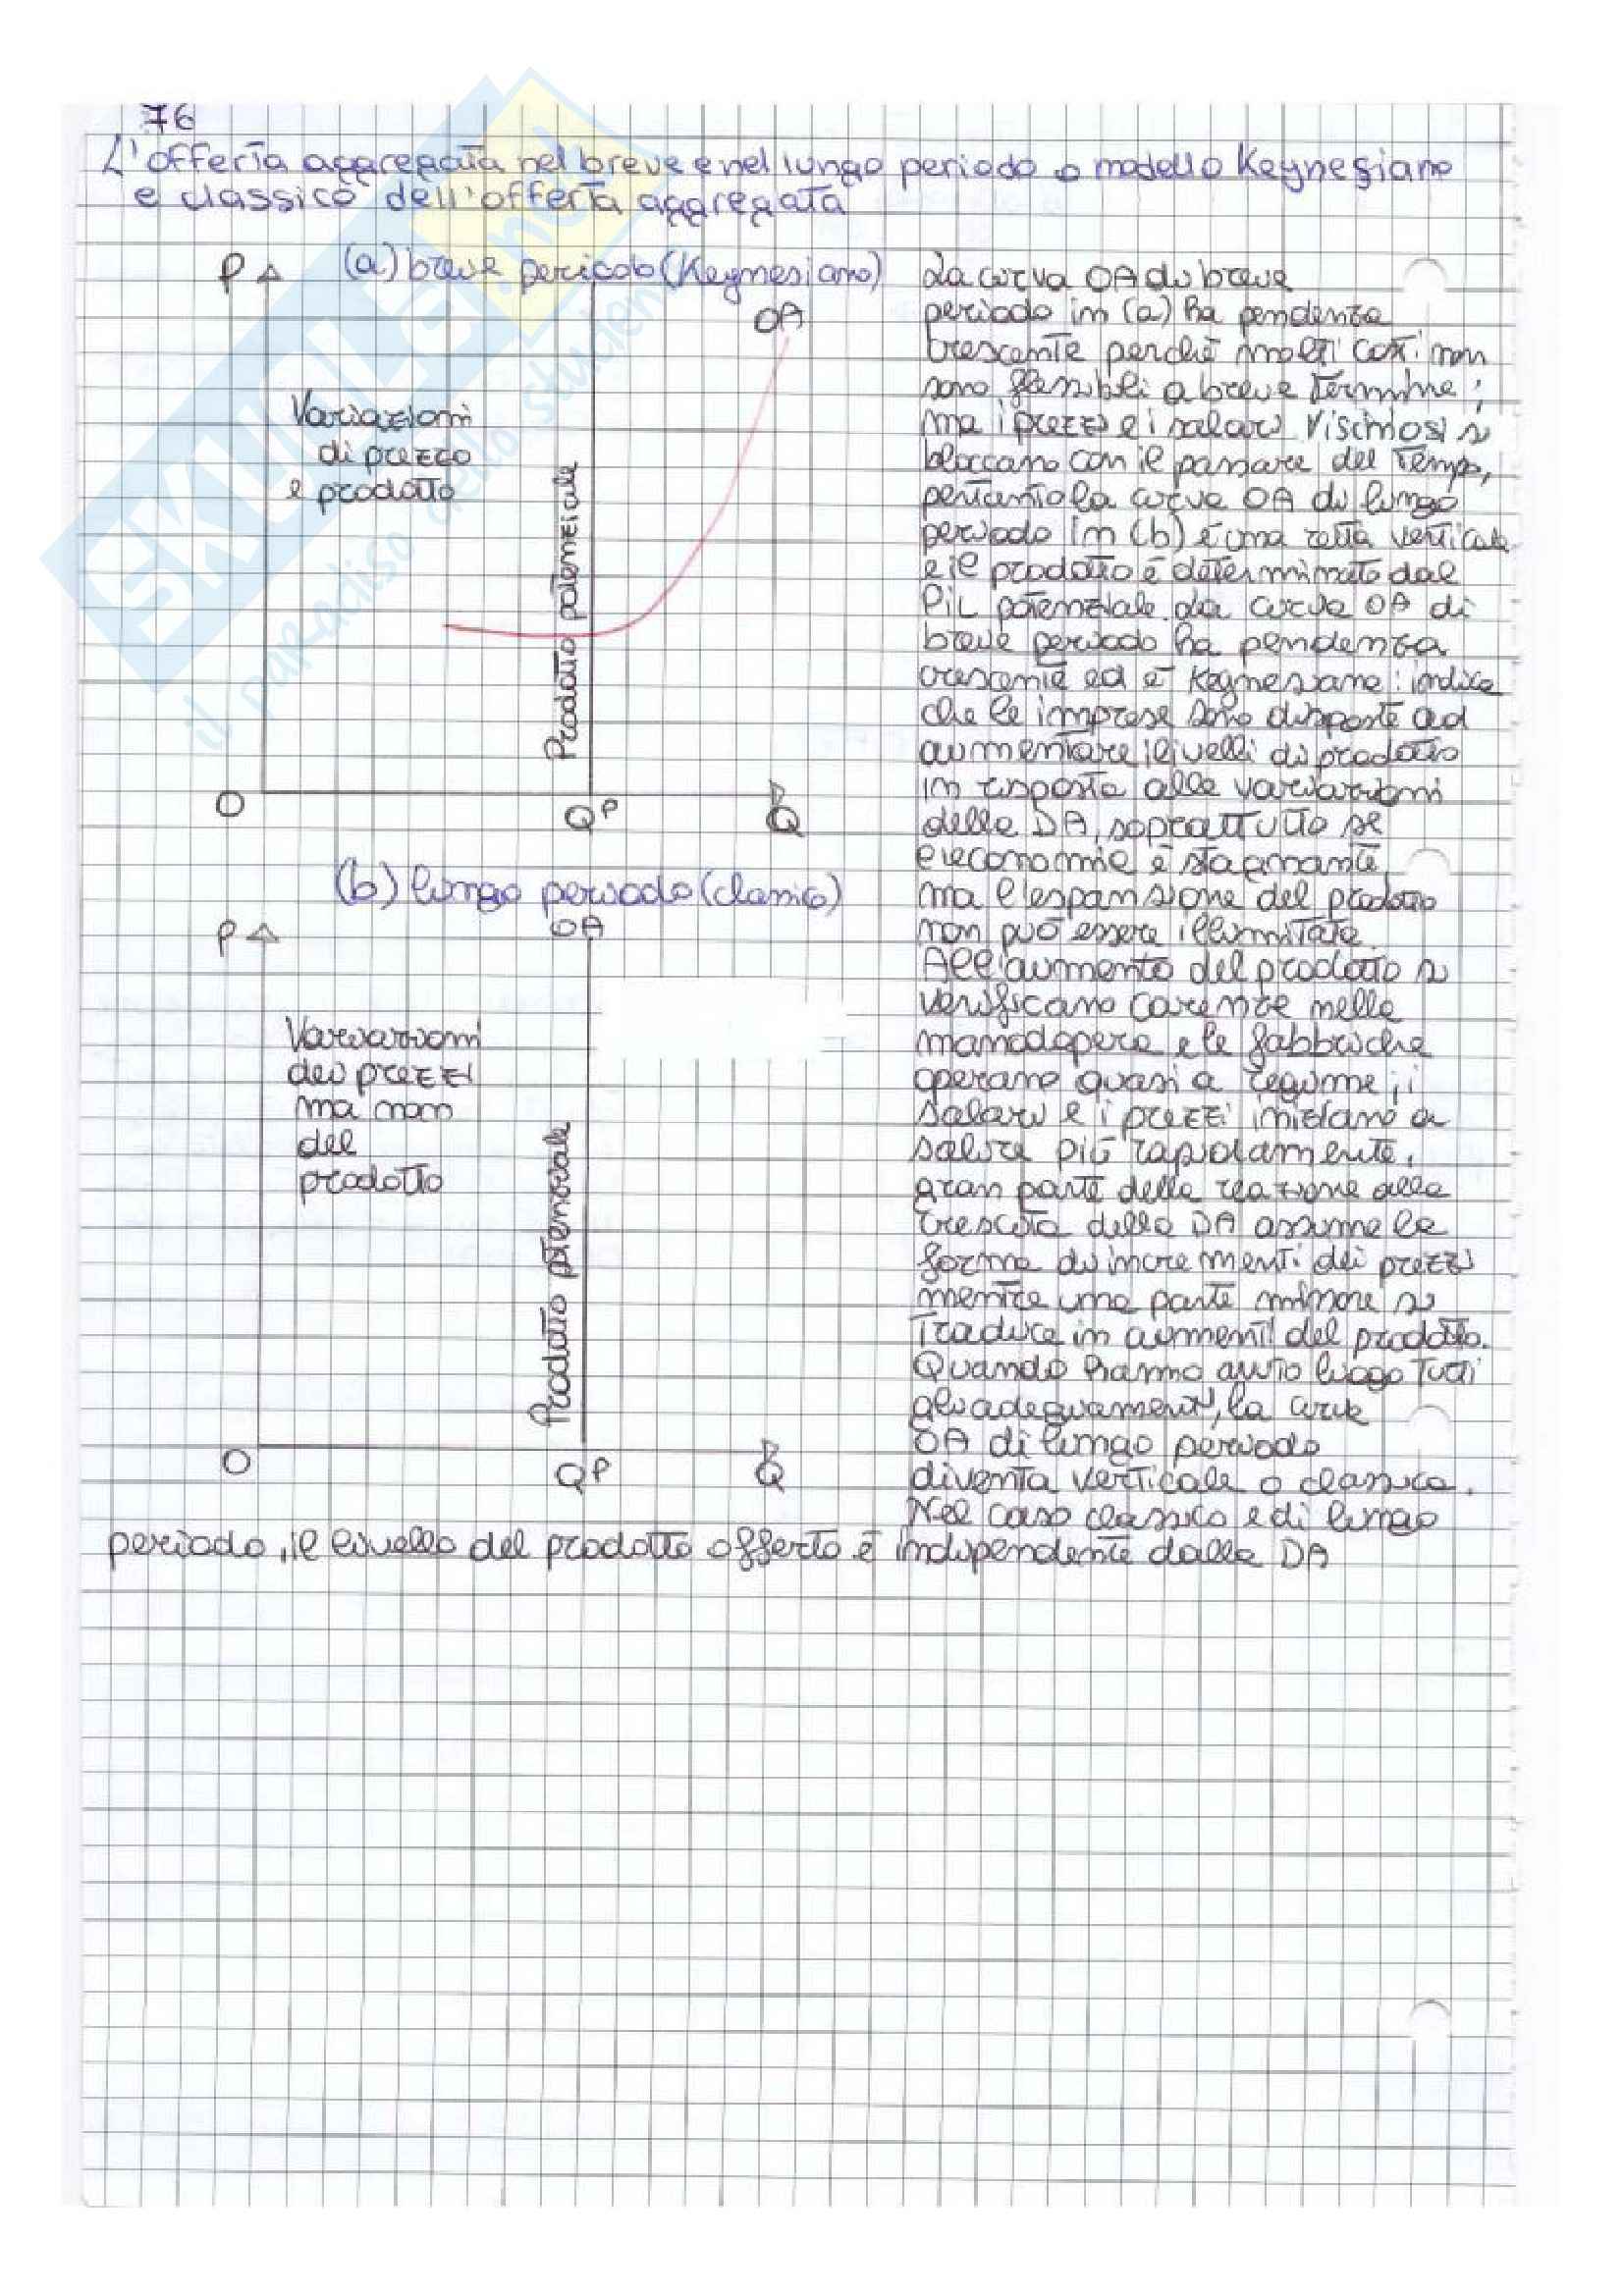 76
L'offerta aggregata nel breve e nel lungo periodo o modello Keynesiano
e classico dell'offerta aggregata
(a) breve periodo (Keynesiano)
P
OA
Variazioni
di prezzo
e prodotto
Prodotto potenziale
O
QP
Q
(b) lungo periodo (classico)
P
OA
Variazioni
dei prezzi
ma non
del
prodotto
Prodotto potenziale
O
QP
Q
La curva OA di breve
periodo in (a) ha pendenza
crescente perché molti costi non
sono flessibili a breve termine;
ma i prezzi e i salari vischiosi si
bloccano con il passare del tempo,
pertanto la curva OA di lungo
periodo in (b) è una retta verticale
e il prodotto è determinato dal
PiL potenziale. La curva OA di
breve periodo ha pendenza
crescente ed è Keynesiana: indica
che le imprese sono disposte ad
aumentare i livelli di prodotto
in risposta alle variazioni
della DA, soprattutto se
l'economia è stagnante,
ma l'espansione del prodotto
non può essere illimitata.
All'aumento del prodotto si
verificano carenze nella
manodopera e le fabbriche
operano quasi a regime; i
salari e i prezzi iniziano a
salire più rapidamente,
gran parte della reazione alla
crescita della DA assume la
forma di incrementi dei prezzi
mentre una parte minore si
traduce in aumenti del prodotto.
Quando hanno avuto luogo tutti
gli adeguamenti, la curva
OA di lungo periodo
diventa verticale o classica.
Nel caso classico e di lungo
periodo, il livello del prodotto offerto è indipendente dalla DA
SKUOLA.net
il paradiso dello studente